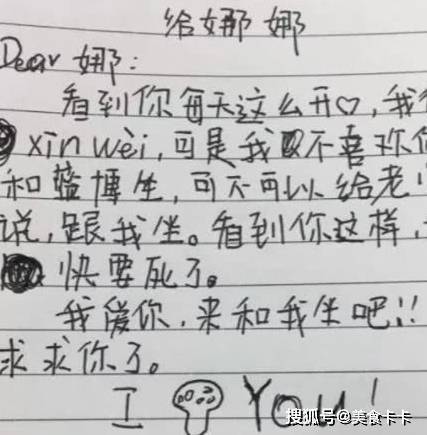 给娜娜
Dear 娜:
看到你每天这么开♡,我
xin wèi,可是我不喜欢你
和蓝博生,可不可以给老
说,跟我坐。看到你这样,
快要死了。
我爱你,来和我坐吧!!
求求你了。
I You!
搜狐号@美食卡卡